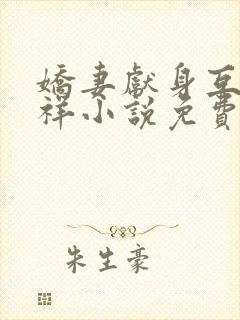 嬌妻獻身互
祥小說免費
朱生豪